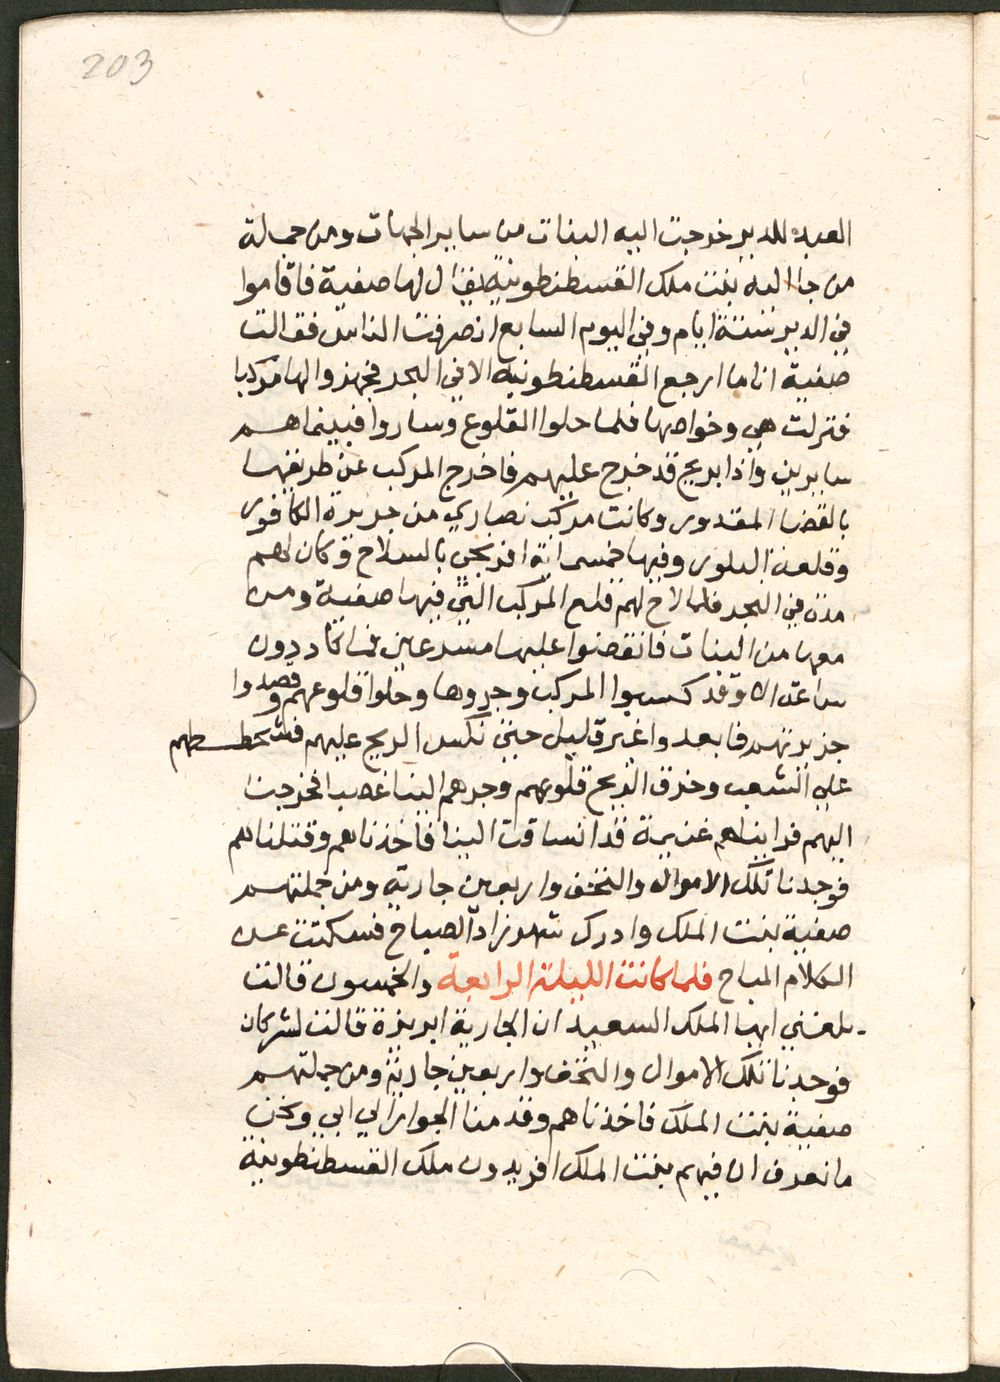 203
العيد للدير خرجت اليه البنات من ساير الجهات ومن جملة
من جا اليه بنت ملك القسطنطونية يقال لها صفية فاقاموا
في الدير ستة ايام وفي اليوم السابع انصرفت الناس فقالت
صفية انا ما ارجع القسطنطونية الا في البحر فجهزوا لها مركبا
فنزلت هي وخواصها فلما حلوا القلوع وساروا فبينما هم
سايرين واذا بريح قد خرج عليهم فاخرج المركب عن طريقها
بالقضا المقدور وكانت مركب نصاري من جزيرة الكافور
وقلعة البلور وفيها خمسماية افرنجي بالسلاح وكان لهم
مدة في البحر فلما لاح لهم قلع المركب التي فيها صفية ومن
معها من البنات فانقضوا عليها مسرعين فما كان دون
ساعة الا وقد كسبوا المركب وجروها وحلوا قلوعهم وقصدوا
جزيرتهم فابعدوا غير قليل حتي نكس الريح عليهم فشحططهم
علي الشعب وخرق الريح قلوعهم وجرهم الينا غصبا فخرجنا
اليهم فراينهم غنيمة قد انساقت الينا فاخذناهم وقتلناهم
فوجدنا تلك الاموال والتحف واربعين جارية ومن جملتهم
صفية بنت الملك وادرك شهرزاد الصباح فسكتت عن
الكلام المباح فلما كانت الليلة الرابعة والخمسون قالت
بلغني ايها الملك السعيد ان الجارية ابريزة قالت لشركان
فوجدنا تلك الاموال والتحف واربعين جارية ومن جملتهم
صفية بنت الملك فاخذناهم وقدمنا الجوار الي ابي ونحن
ما نعرف ان فيهم بنت الملك افريدون ملك القسطنطونية